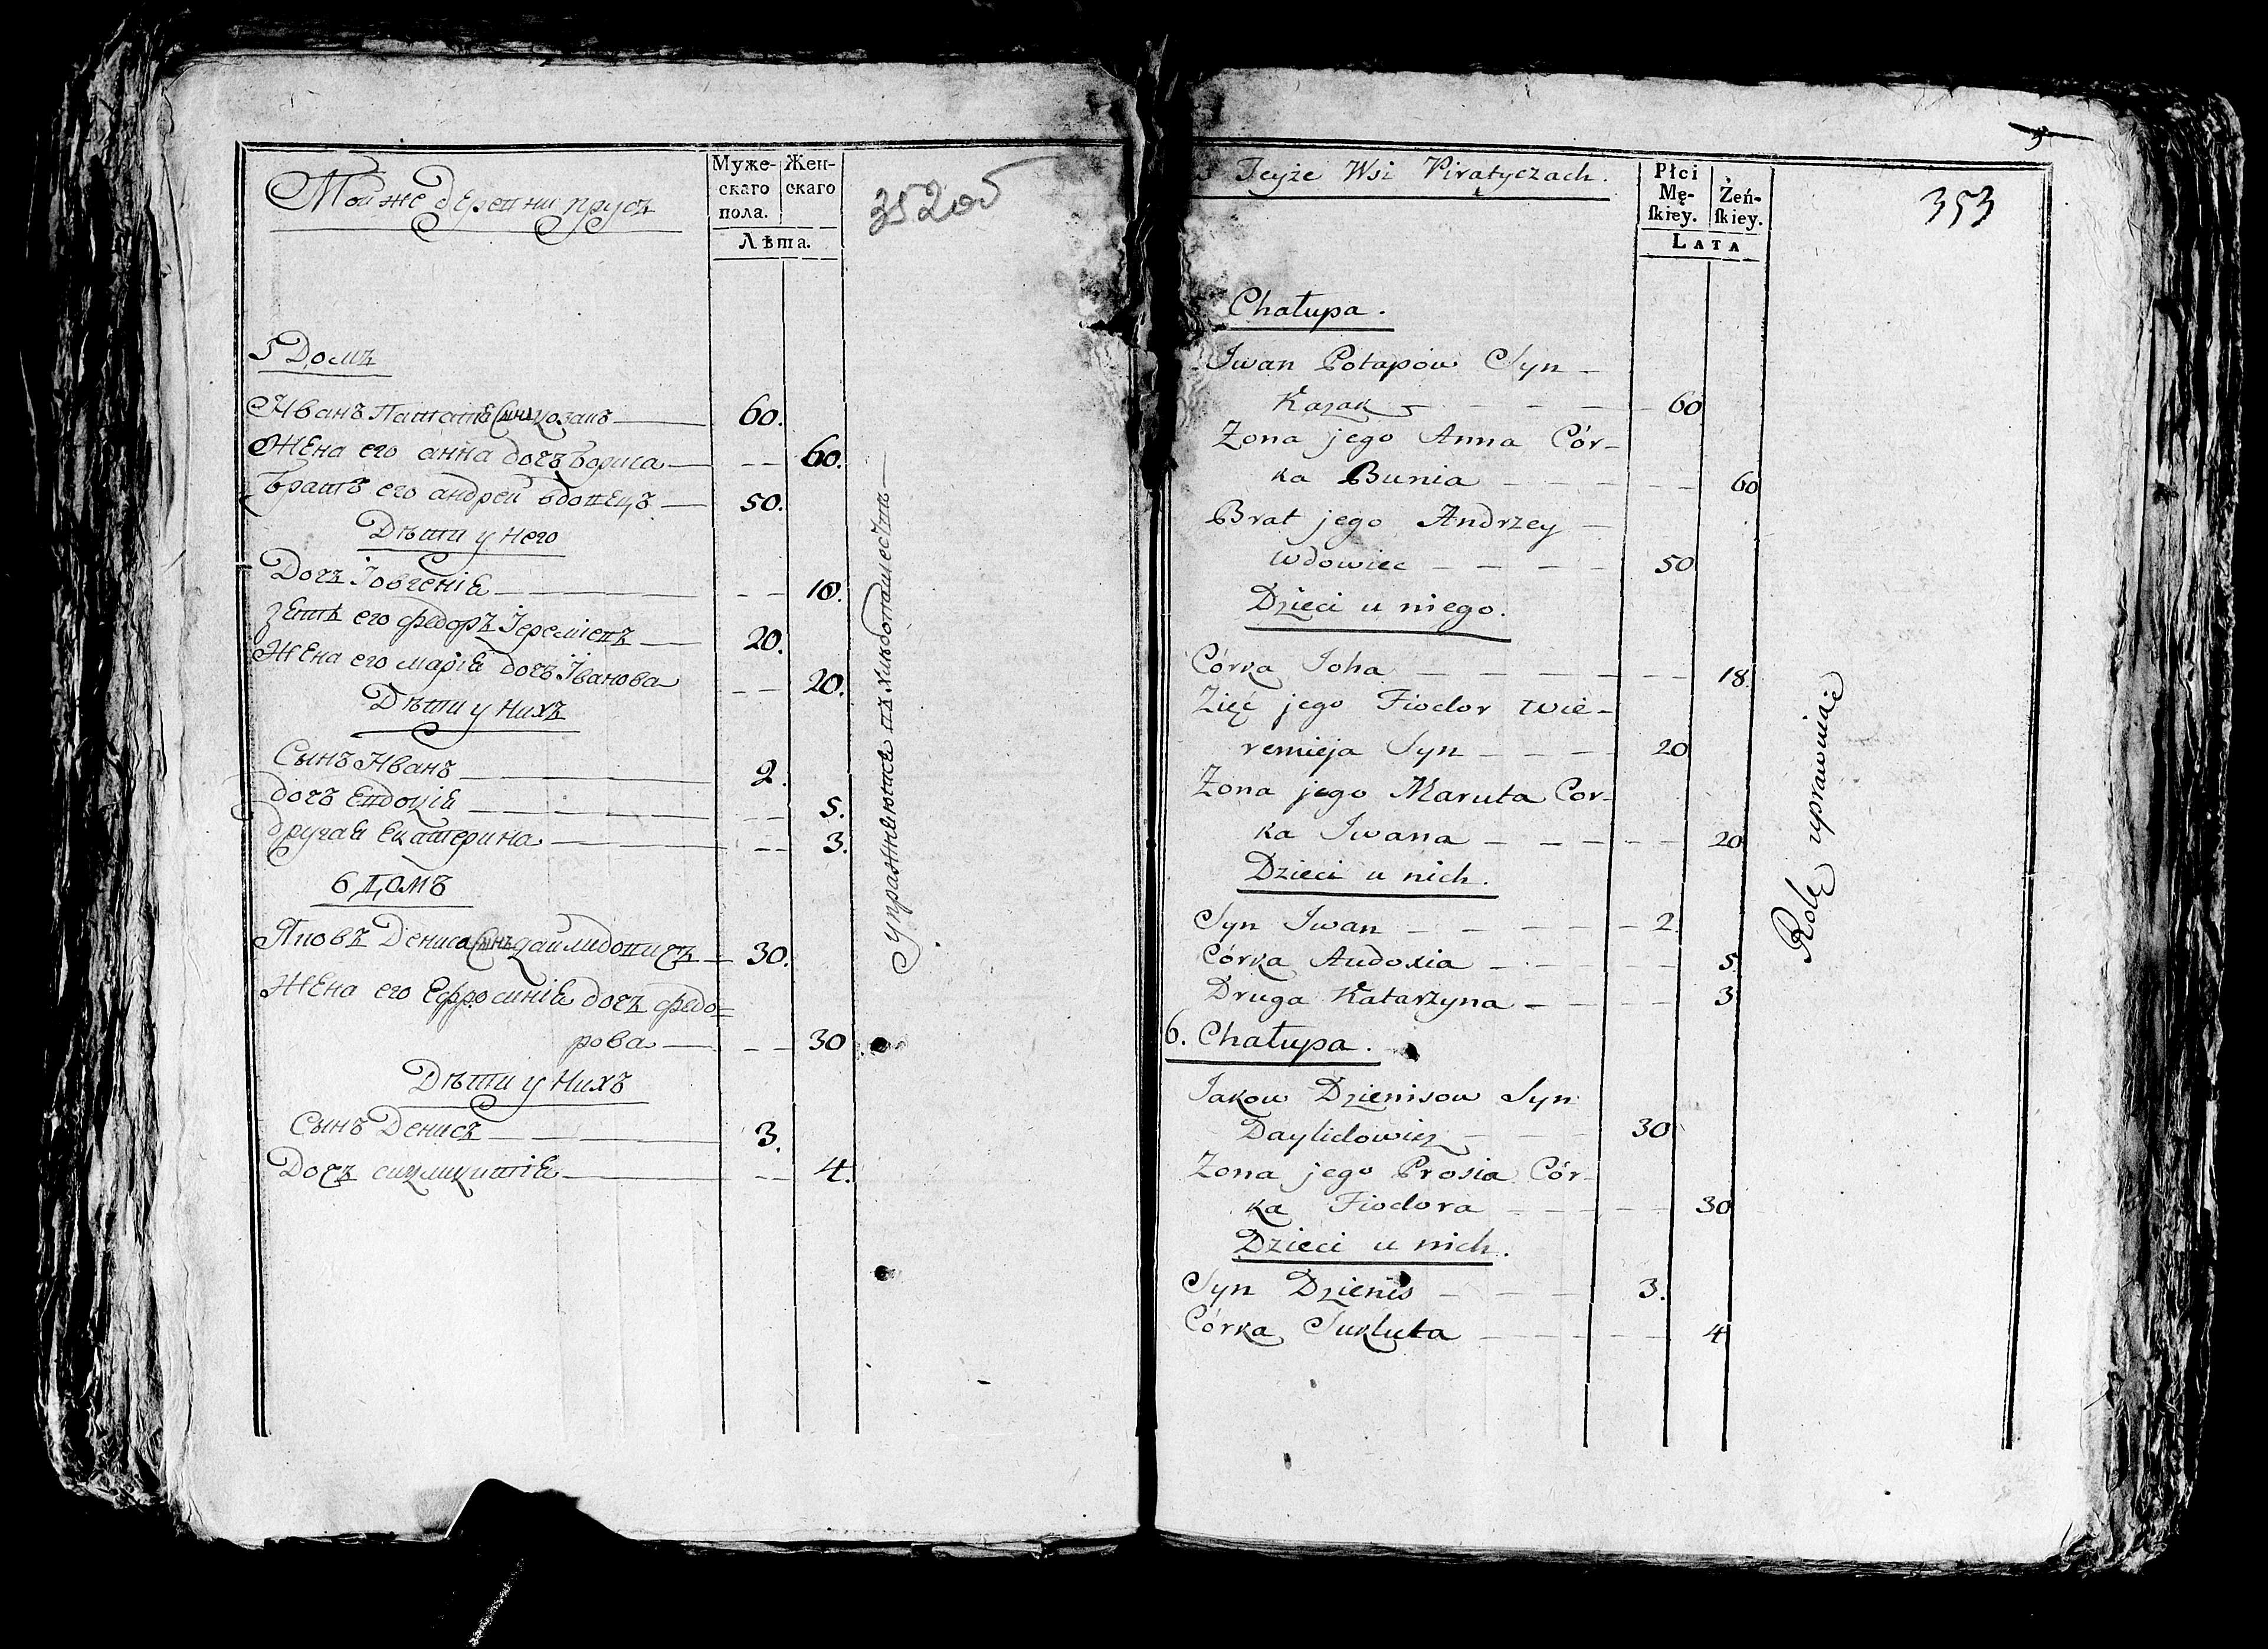 Тойже деревни прусъ
Муже-
скаго
пола.
Жен-
скаго
Лѣта.
352об
5 Домъ
Иванъ Патапѣ Сынъ козакъ 60.
Жена его анна дочъ бориса 60.
братъ его андрей вдовецъ 50.
Дѣти у него
Дочъ Іовгенія 18.
зеть его федоръ Іеремѣевъ 20.
Жена его марія дочъ Іванова 20.
Дѣти у нихъ
Сынъ Иванъ 2.
дочъ Евдокія 5.
другая Екатерина 3.
6 домъ
Яковъ Дениса Сынъ дайлидовичъ 30.
Жена его Ефросинія дочъ федо=
рова 30
Дѣти у нихъ
Сынъ Денисъ 3.
Дочъ 4.
Упражняются въ хлебопашествѣ
Teyże Wsi Piratyczach.
Płci
Mę-
ſkiey.
Żeń-
ſkiey.
LATA
353
Chałupa.
Jwan Potapow Syn
Kazak 60
Zona jego Anna Cór-
ka Bunia 60
Brat jego Andrzey
wdowiec 50
Dzieci u niego.
Córka Joha 18.
Zięć jego Fiodor wie-
remieja Syn 20
Zona jego Maruta Cor-
ka Jwana 20
Dzieci u nich.
Syn Jwan 2.
Córka Audoxia 5.
Druga Katarzyna 3
6. Chałupa.
Jakow Dzienisow Syn
Daylidowicz 30
Zona jego Prosia Cór-
ka Fiodora 30
Dzieci u nich.
Syn Dzienis 3.
Córka Sukluta 4
Rolę uprawniaie